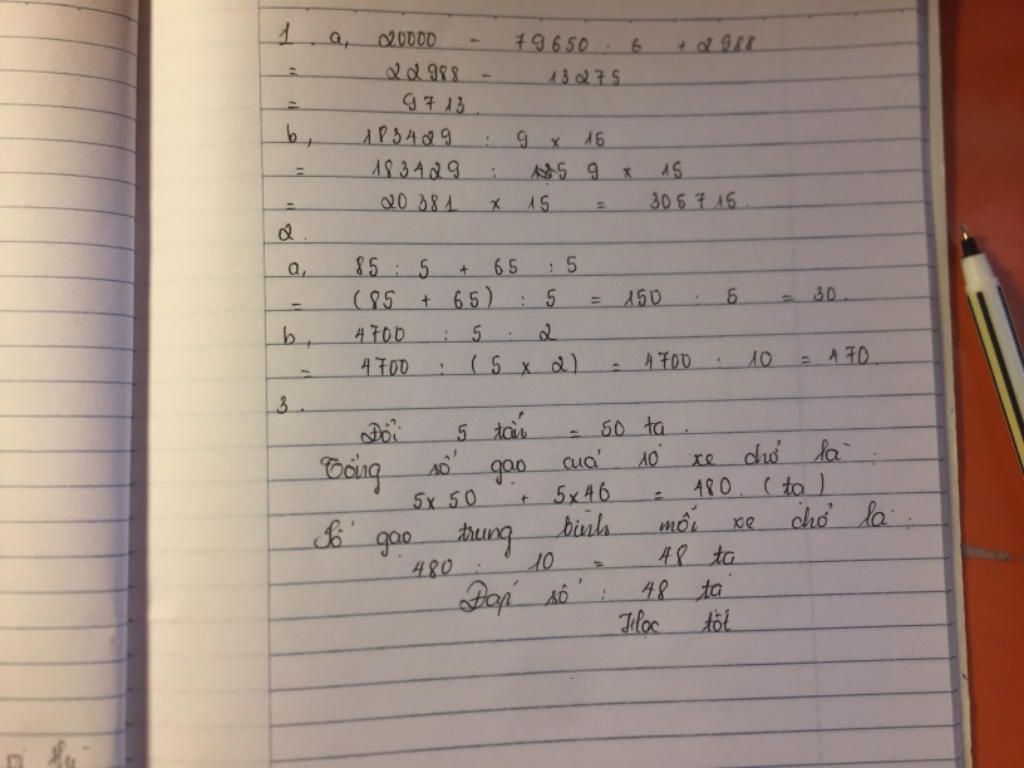 1. a, 20000 - 79650 : 6 + 2988
= 22988 - 13275
= 9713.
b, 183429 : 9 x 15
= 183429 : 9 x 15
= 20381 x 15 = 305715.
2.
a, 85 : 5 + 65 : 5
= (85 + 65) : 5 = 150 : 5 = 30.
b, 4700 : 5 : 2
= 4700 : (5 x 2) = 4700 : 10 = 470
3.
Đổi 5 tấn = 50 tạ.
Tổng số gạo của 10 xe chở là:
5x50 + 5x46 = 480. (tạ)
Số gạo trung bình mỗi xe chở là:
480 : 10 = 48 tạ
Đáp số : 48 tạ
Học tốt